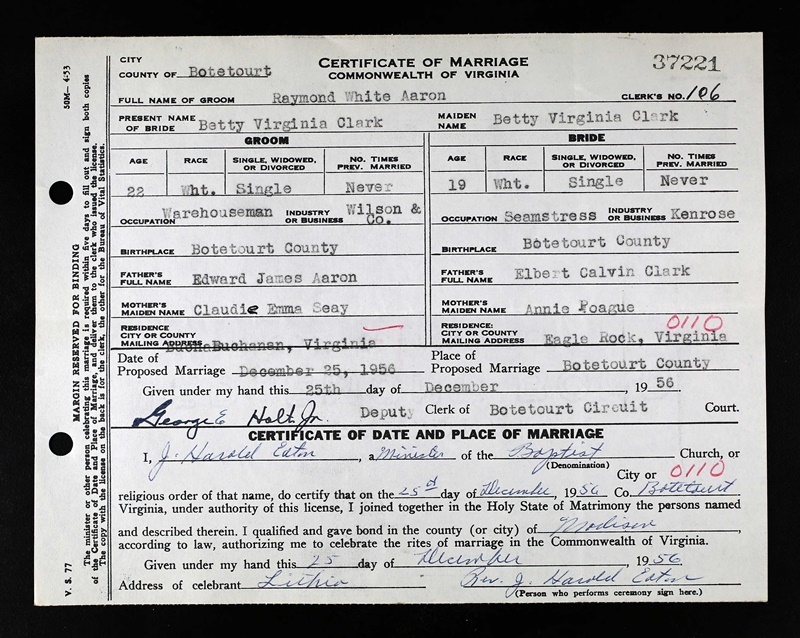 CITY
COUNTY OF Botetourt
CERTIFICATE OF MARRIAGE
COMMONWEALTH OF VIRGINIA
37221
FULL NAME OF GROOM Raymond White Aaron CLERK'S NO. 106
PRESENT NAME OF BRIDE Betty Virginia Clark MAIDEN NAME Betty Virginia Clark
GROOM BRIDE
AGE RACE SINGLE, WIDOWED, OR DIVORCED NO. TIMES PREV. MARRIED AGE RACE SINGLE, WIDOWED, OR DIVORCED NO. TIMES PREV. MARRIED
22 Wht. Single Never 19 Wht. Single Never
OCCUPATION Warehouseman INDUSTRY OR BUSINESS Wilson & Co. OCCUPATION Seamstress INDUSTRY OR BUSINESS Kenrose
BIRTHPLACE Botetourt County BIRTHPLACE Botetourt County
FATHER'S FULL NAME Edward James Aaron FATHER'S FULL NAME Elbert Calvin Clark
MOTHER'S MAIDEN NAME Claudie Emma Seay MOTHER'S MAIDEN NAME Annie Poague
RESIDENCE CITY OR COUNTY MAILING ADDRESS Buchanan, Virginia RESIDENCE CITY OR COUNTY MAILING ADDRESS Eagle Rock, Virginia 0110
Date of Proposed Marriage December 25, 1956 Place of Proposed Marriage Botetourt County
Given under my hand this 25th day of December, 1956
George E Holt, Jr. Deputy Clerk of Botetourt Circuit Court.
CERTIFICATE OF DATE AND PLACE OF MARRIAGE
I, J. Harold Eaton, a Minister of the Baptist Church, or
(Denomination)
City or 0110
religious order of that name, do certify that on the 25 day of December, 1956 Co. Botetourt
Virginia, under authority of this license, I joined together in the Holy State of Matrimony the persons named
and described therein. I qualified and gave bond in the county (or city) of Madison,
according to law, authorizing me to celebrate the rites of marriage in the Commonwealth of Virginia.
Given under my hand this 25 day of December, 1956
Address of celebrant Lithia Rev. J. Harold Eaton
(Person who performs ceremony sign here.)
V. S. 77
50M—4-53
MARGIN RESERVED FOR BINDING
The minister or other person celebrating this marriage is required within five days to fill out and sign both copies
of the Certificate of Date and Place of Marriage, and deliver them to the clerk who issued the license.
The copy with the license on the back is for the clerk, the other for the Bureau of Vital Statistics.